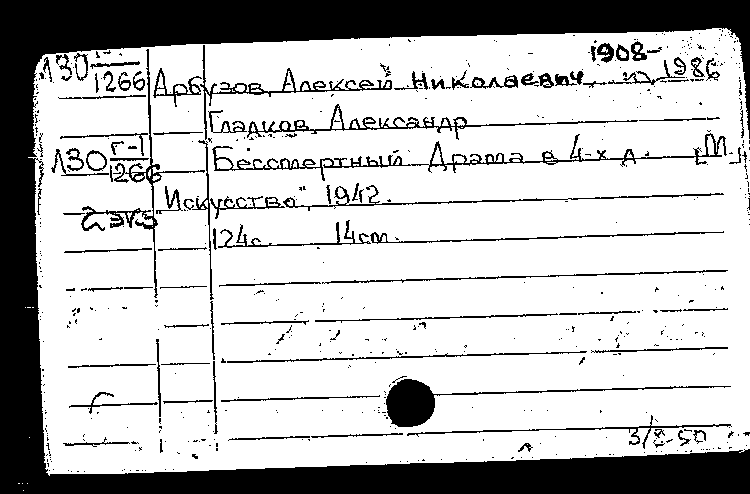 130 г-1/1266
Арбузов, Алексей Николаевич, 1908-1986 и
Гладков, Александр
130 г-1/1266 Бессмертный Драма в 4-х д. [М.]
2 экз "Искусство", 1942.
124с. 14см.
3/2-50